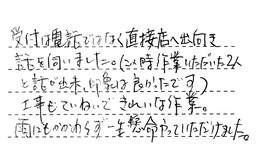 受付は電話ではなく直接店へ出向き
話を伺いました。(この時作業いただいた2人
と話が出来、印象は良かったです)
工事もていねいできれいな作業。
雨にもかかわらず一生懸命やっていただけました。